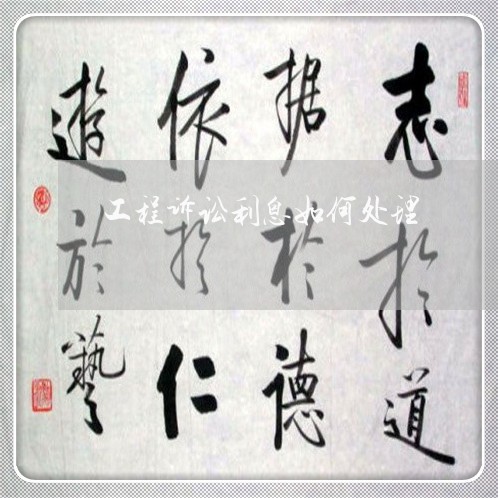 志於道
据於德
依於仁
遊於藝
工程诉讼利息如何处理